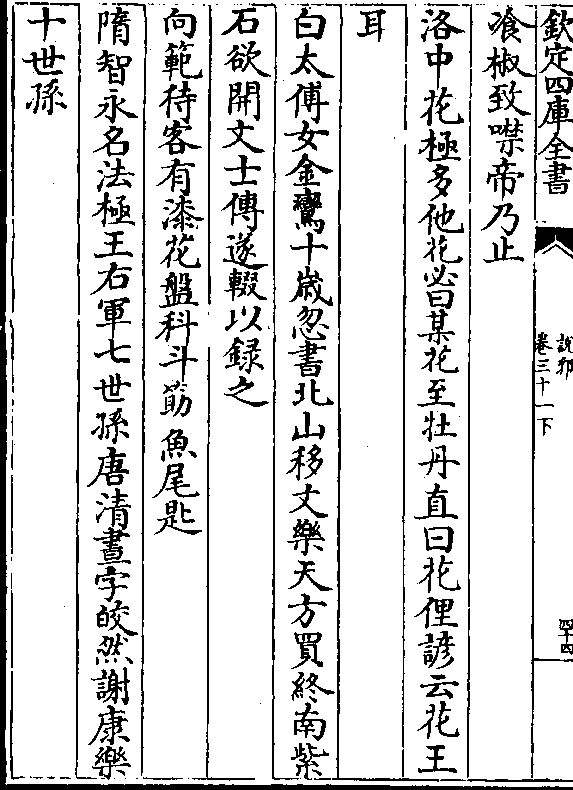 欽定四庫全書
說郛
卷三十一下
四十四
飡椒致噤帝乃止
洛中花極多他花必曰某花至牡丹直曰花俚諺云花王
耳
白太傅女金鸞十歲忽書北山移文樂天方買終南紫
石欲開文士傳遂輟以録之
向範待客有漆花盤科斗筯魚尾匙
隋智永名法極王右軍七世孫唐清晝字皎然謝康樂
十世孫